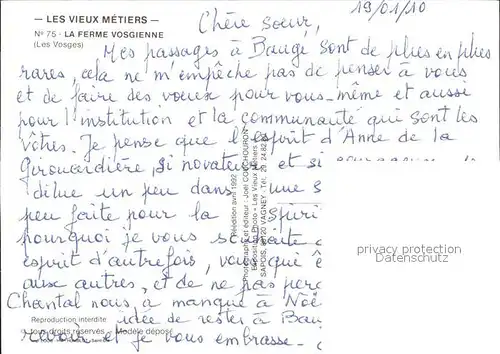 - LES VIEUX MÉTIERS -
N° 75 - LA FERME VOSGIENNE
(Les Vosges)
19/01/10
Chère Soeur,
Mes passages à Baugé sont de plus en plus
rares, cela ne m'empêche pas de penser à vous
et de faire des voeux pour vous-même et aussi
pour l'institution et la communauté qui sont les
vôtres. Je pense que l'esprit d'Anne de la
Girouardière, si novateur et si
dilue un peu dans une s
peu faite pour la spiri
pourquoi je vous souhaite
esprit d'autrefois, vous qui ê
aux autres, et de ne pas perd
Chantal nous a manqué à Noë
idée de rester à Bau
revoir et je vous embrasse.
Réédition avril 1992
Photographe et éditeur : Joël COUCHOURON
Exposition Photo « Les Vieux Métiers »
SAPOIS, 88120 VAGNEY - Tél. 29 24.82
Reproduction interdite
tous droits réservés Modèle déposé
privacy protection
Datenschutz